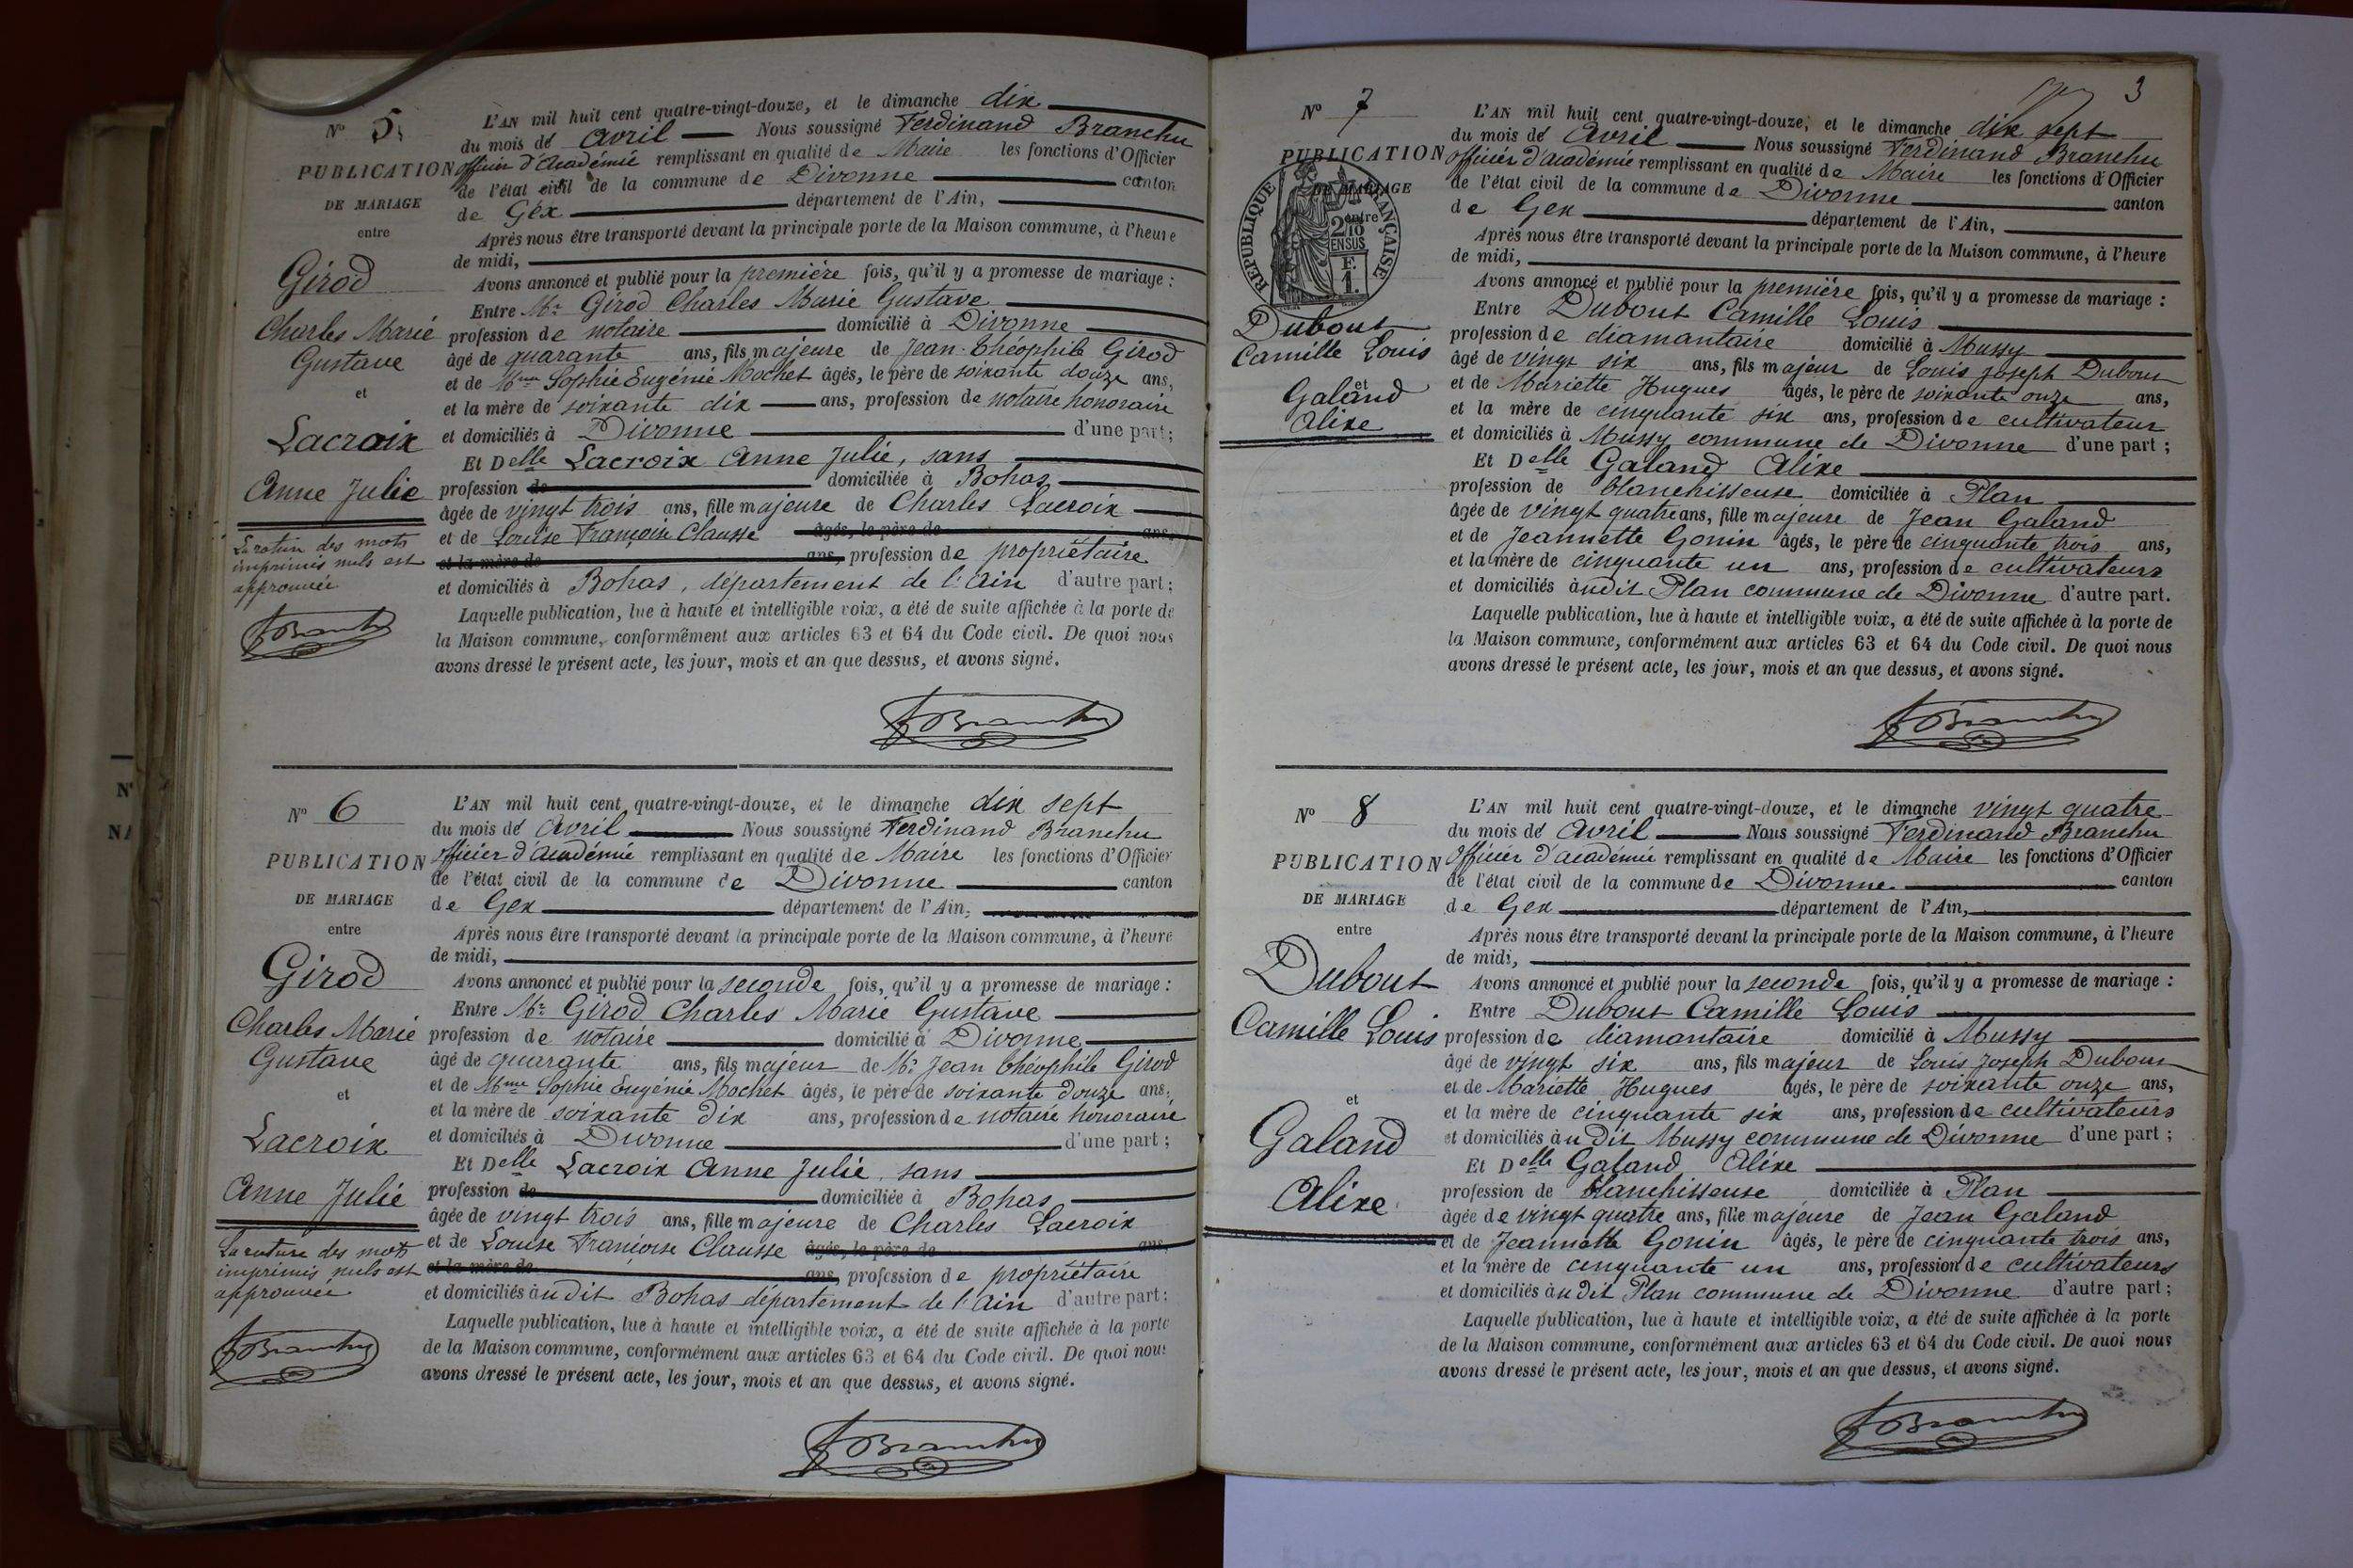 N° 5.
PUBLICATION
DE MARIAGE
entre
Girod
Charles Marie
Gustave
et
Lacroix
Anne Julie
La rature des mots
imprimés nuls est
approuvée
FBranchu
L'AN mil huit cent quatre-vingt-douze, et le dimanche dix
du mois de Avril Nous soussigné Ferdinand Branchu
officier d'Académie remplissant en qualité de Maire les fonctions d'Officier
de l'état civil de la commune de Divonne canton
de Gex département de l'Ain,
Après nous être transporté devant la principale porte de la Maison commune, à l'heure
de midi,
Avons annoncé et publié pour la première fois, qu'il y a promesse de mariage :
Entre Mr Girod Charles Marie Gustave
profession de notaire domicilié à Divonne
âgé de quarante ans, fils majeure de Jean Théophile Girod
et de Mme Sophie Eugénie Mochet âgés, le père de soixante douze ans,
et la mère de soixante dix ans, profession de notaire honoraire
et domiciliés à Divonne d'une part;
Et Delle Lacroix Anne Julie, sans
profession de domiciliée à Bohas
âgée de vingt trois ans, fille majeure de Charles Lacroix
et de Louise Françoise Clausse âgés, le père de ans,
et la mère de ans, profession de propriétaire
et domiciliés à Bohas, département de l'Ain d'autre part;
Laquelle publication, lue à haute et intelligible voix, a été de suite affichée à la porte de
la Maison commune, conformément aux articles 63 et 64 du Code civil. De quoi nous
avons dressé le présent acte, les jour, mois et an que dessus, et avons signé.
FBranchu
N° 6
PUBLICATION
DE MARIAGE
entre
Girod
Charles Marie
Gustave
et
Lacroix
Anne Julie
La rature des mots
imprimés nuls est
approuvée
FBranchu
L'AN mil huit cent quatre-vingt-douze, et le dimanche dix sept
du mois de Avril Nous soussigné Ferdinand Branchu
officier d'Académie remplissant en qualité de Maire les fonctions d'Officier
de l'état civil de la commune de Divonne canton
de Gex département de l'Ain,
Après nous être transporté devant la principale porte de la Maison commune, à l'heure
de midi,
Avons annoncé et publié pour la seconde fois, qu'il y a promesse de mariage :
Entre Mr Girod Charles Marie Gustave
profession de notaire domicilié à Divonne
âgé de quarante ans, fils majeur de Mr Jean Théophile Girod
et de Mme Sophie Eugénie Mochet âgés, le père de soixante douze ans,
et la mère de soixante dix ans, profession de notaire honoraire
et domiciliés à Divonne d'une part ;
Et Delle Lacroix Anne Julie, sans
profession de domiciliée à Bohas
âgée de vingt trois ans, fille majeure de Charles Lacroix
et de Louise Françoise Clausse âgés, le père de ans,
et la mère de ans, profession de propriétaire
et domiciliés àudit Bohas département de l'Ain d'autre part;
Laquelle publication, lue à haute et intelligible voix, a été de suite affichée à la porte
de la Maison commune, conformément aux articles 63 et 64 du Code civil. De quoi nous
avons dressé le présent acte, les jour, mois et an que dessus, et avons signé.
FBranchu
3
N° 7
PUBLICATION
DE MARIAGE
entre
RÉPUBLIQUE FRANÇAISE
2/10
EN SUS
F.
1.
Dubout
Camille Louis
et
Galand
Alixe
L'AN mil huit cent quatre-vingt-douze, et le dimanche dix sept
du mois de Avril Nous soussigné Ferdinand Branchu
officier d'académie remplissant en qualité de Maire les fonctions d'Officier
de l'état civil de la commune de Divonne canton
de Gex département de l'Ain,
Après nous être transporté devant la principale porte de la Maison commune, à l'heure
de midi,
Avons annoncé et publié pour la première fois, qu'il y a promesse de mariage :
Entre Dubout Camille Louis
profession de diamantaire domicilié à Mussy
âgé de vingt six ans, fils majeur de Louis Joseph Dubout
et de Mariette Hugues âgés, le père de soixante onze ans,
et la mère de cinquante six ans, profession de cultivateur
et domiciliés à Mussy commune de Divonne d'une part ;
Et Delle Galand Alixe
profession de blanchisseuse domiciliée à Plan
âgée de vingt quatre ans, fille majeure de Jean Galand
et de Jeannette Gonin âgés, le père de cinquante trois ans,
et la mère de cinquante un ans, profession de cultivateurs
et domiciliés àudit Plan commune de Divonne d'autre part.
Laquelle publication, lue à haute et intelligible voix, a été de suite affichée à la porte de
la Maison commune, conformément aux articles 63 et 64 du Code civil. De quoi nous
avons dressé le présent acte, les jour, mois et an que dessus, et avons signé.
FBranchu
N° 8
PUBLICATION
DE MARIAGE
entre
Dubout
Camille Louis
et
Galand
Alixe
L'AN mil huit cent quatre-vingt-douze, et le dimanche vingt quatre
du mois de Avril Nous soussigné Ferdinand Branchu
Officier d'académie remplissant en qualité de Maire les fonctions d'Officier
de l'état civil de la commune de Divonne canton
de Gex département de l'Ain,
Après nous être transporté devant la principale porte de la Maison commune, à l'heure
de midi,
Avons annoncé et publié pour la seconde fois, qu'il y a promesse de mariage :
Entre Dubout Camille Louis
profession de diamantaire domicilié à Mussy
âgé de vingt six ans, fils majeur de Louis Joseph Dubout
et de Mariette Hugues âgés, le père de soixante onze ans,
et la mère de cinquante six ans, profession de cultivateurs
et domiciliés àu dit Mussy commune de Divonne d'une part ;
Et Delle Galand Alixe
profession de blanchisseuse domiciliée à Plan
âgée de vingt quatre ans, fille majeure de Jean Galand
et de Jeannette Gonin âgés, le père de cinquante trois ans,
et la mère de cinquante un ans, profession de cultivateurs
et domiciliés àu dit Plan commune de Divonne d'autre part ;
Laquelle publication, lue à haute et intelligible voix, a été de suite affichée à la porte
de la Maison commune, conformément aux articles 63 et 64 du Code civil. De quoi nous
avons dressé le présent acte, les jour, mois et an que dessus, et avons signé.
FBranchu